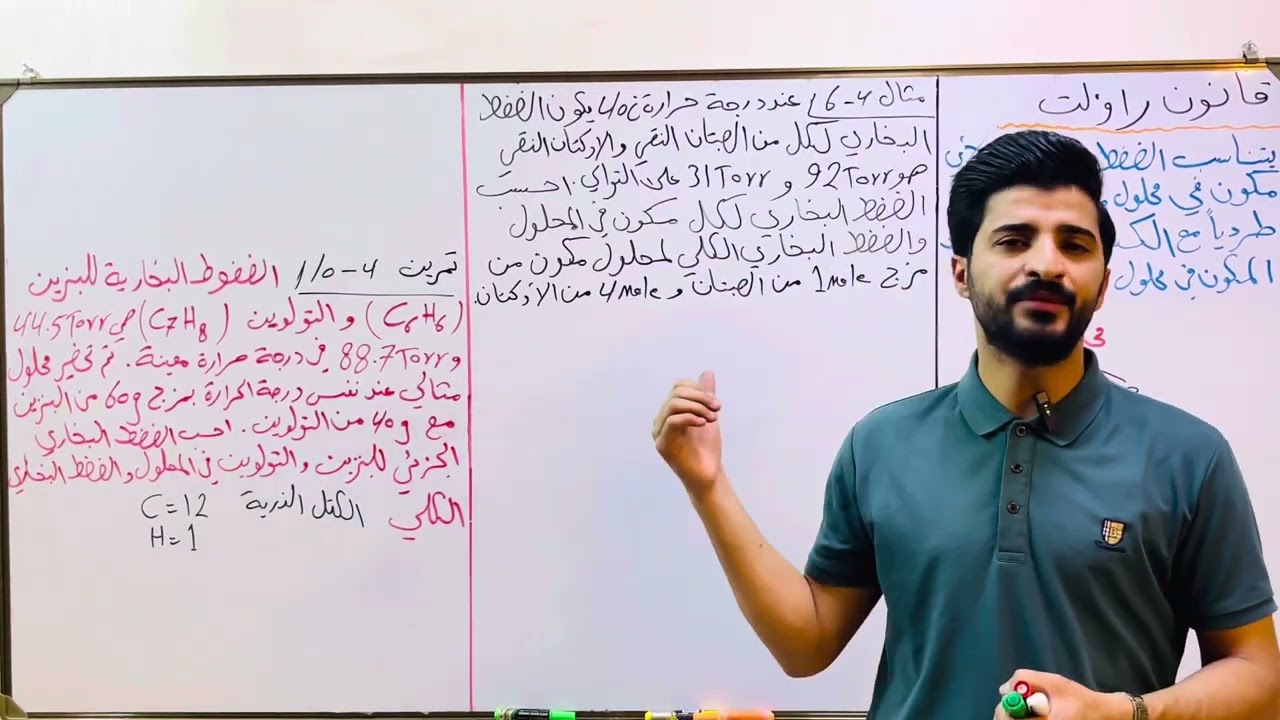 قانون راؤلت
يتناسب الضغط
مكون في محلول
طردياً مع
المكون في محلول
مثال 4-16 عند درجة حرارة 40 يكون الضغط
البخاري لكل من الهبتان النقي والاوكتان النقي
هو 92 Torr و 31 Torr على التوالي. احسب
الضغط البخاري لكل مكون في المحلول
والضغط البخاري الكلي لمحلول مكون من
مزج 1 mole من الهبتان و 4 mole من الأوكتان.
تمرين 4-10/ الضغوط البخارية للبنزين
(C6H6) والتولوين (C7H8) هي 44.5 Torr
و 88.7 Torr في درجة حرارة معينة. تم تحضير محلول
مثالي عند نفس درجة الحرارة بمزج 60 g من البنزين
مع 40 g من التولوين. احسب الضغط البخاري
الجزئي للبنزين والتولوين في المحلول والضغط البخاري
الكلي الكتل الذرية C=12
H=1